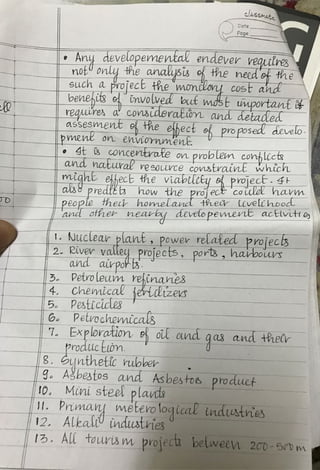 classmate
Date
Page
• Any developemental endever requires
not only the analysis of the need of the
such a project the monday cost and
benefits of involved but most important it
requires a consideration and detaded
assesment of the effect of proposed develo-
pment on enviornment.
• It is concentrate on problem conflicts
and natural resource constraint which
might effect the viability of project. It
also predicts how the project could harm
people their homeland their livelihood
and other nearby developement activities
1. Nuclear plant, power related projects
2. River valley projects, ports, harbours
and airports.
3. Petroleum refinaries
4. Chemical fertilizers
5. Pesticides
6. Petrochemicals
7. Exploration of oil and gas and their
production
8. Synthetic rubber
9. Asbestos and Asbestos product
10. Mini steel plants
11. Primary meterological industries
12. Alkali industries
13. All tourism projects between 200-500m